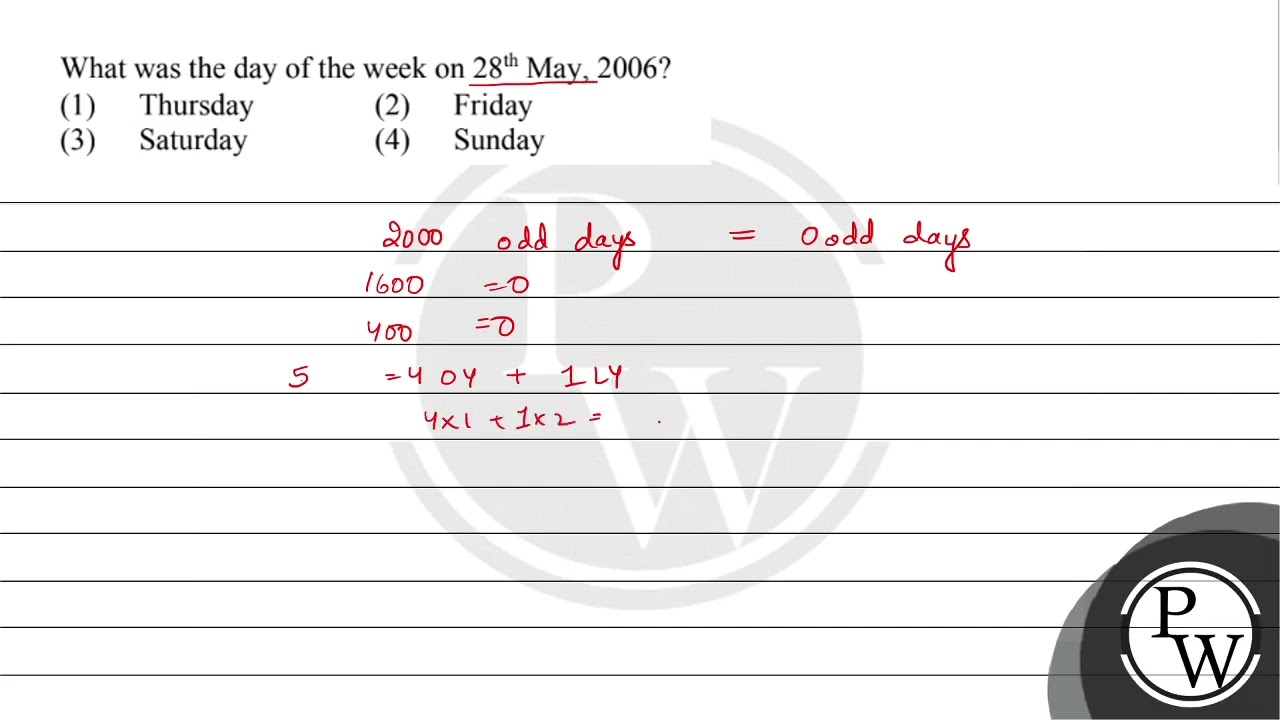 What was the day of the week on 28th May, 2006?
(1) Thursday (2) Friday
(3) Saturday (4) Sunday
2000 odd days = 0 odd days
1600 =0
400 =0
5 =4 OY + 1 LY
4x1 + 1x2 =
P
W
P
W